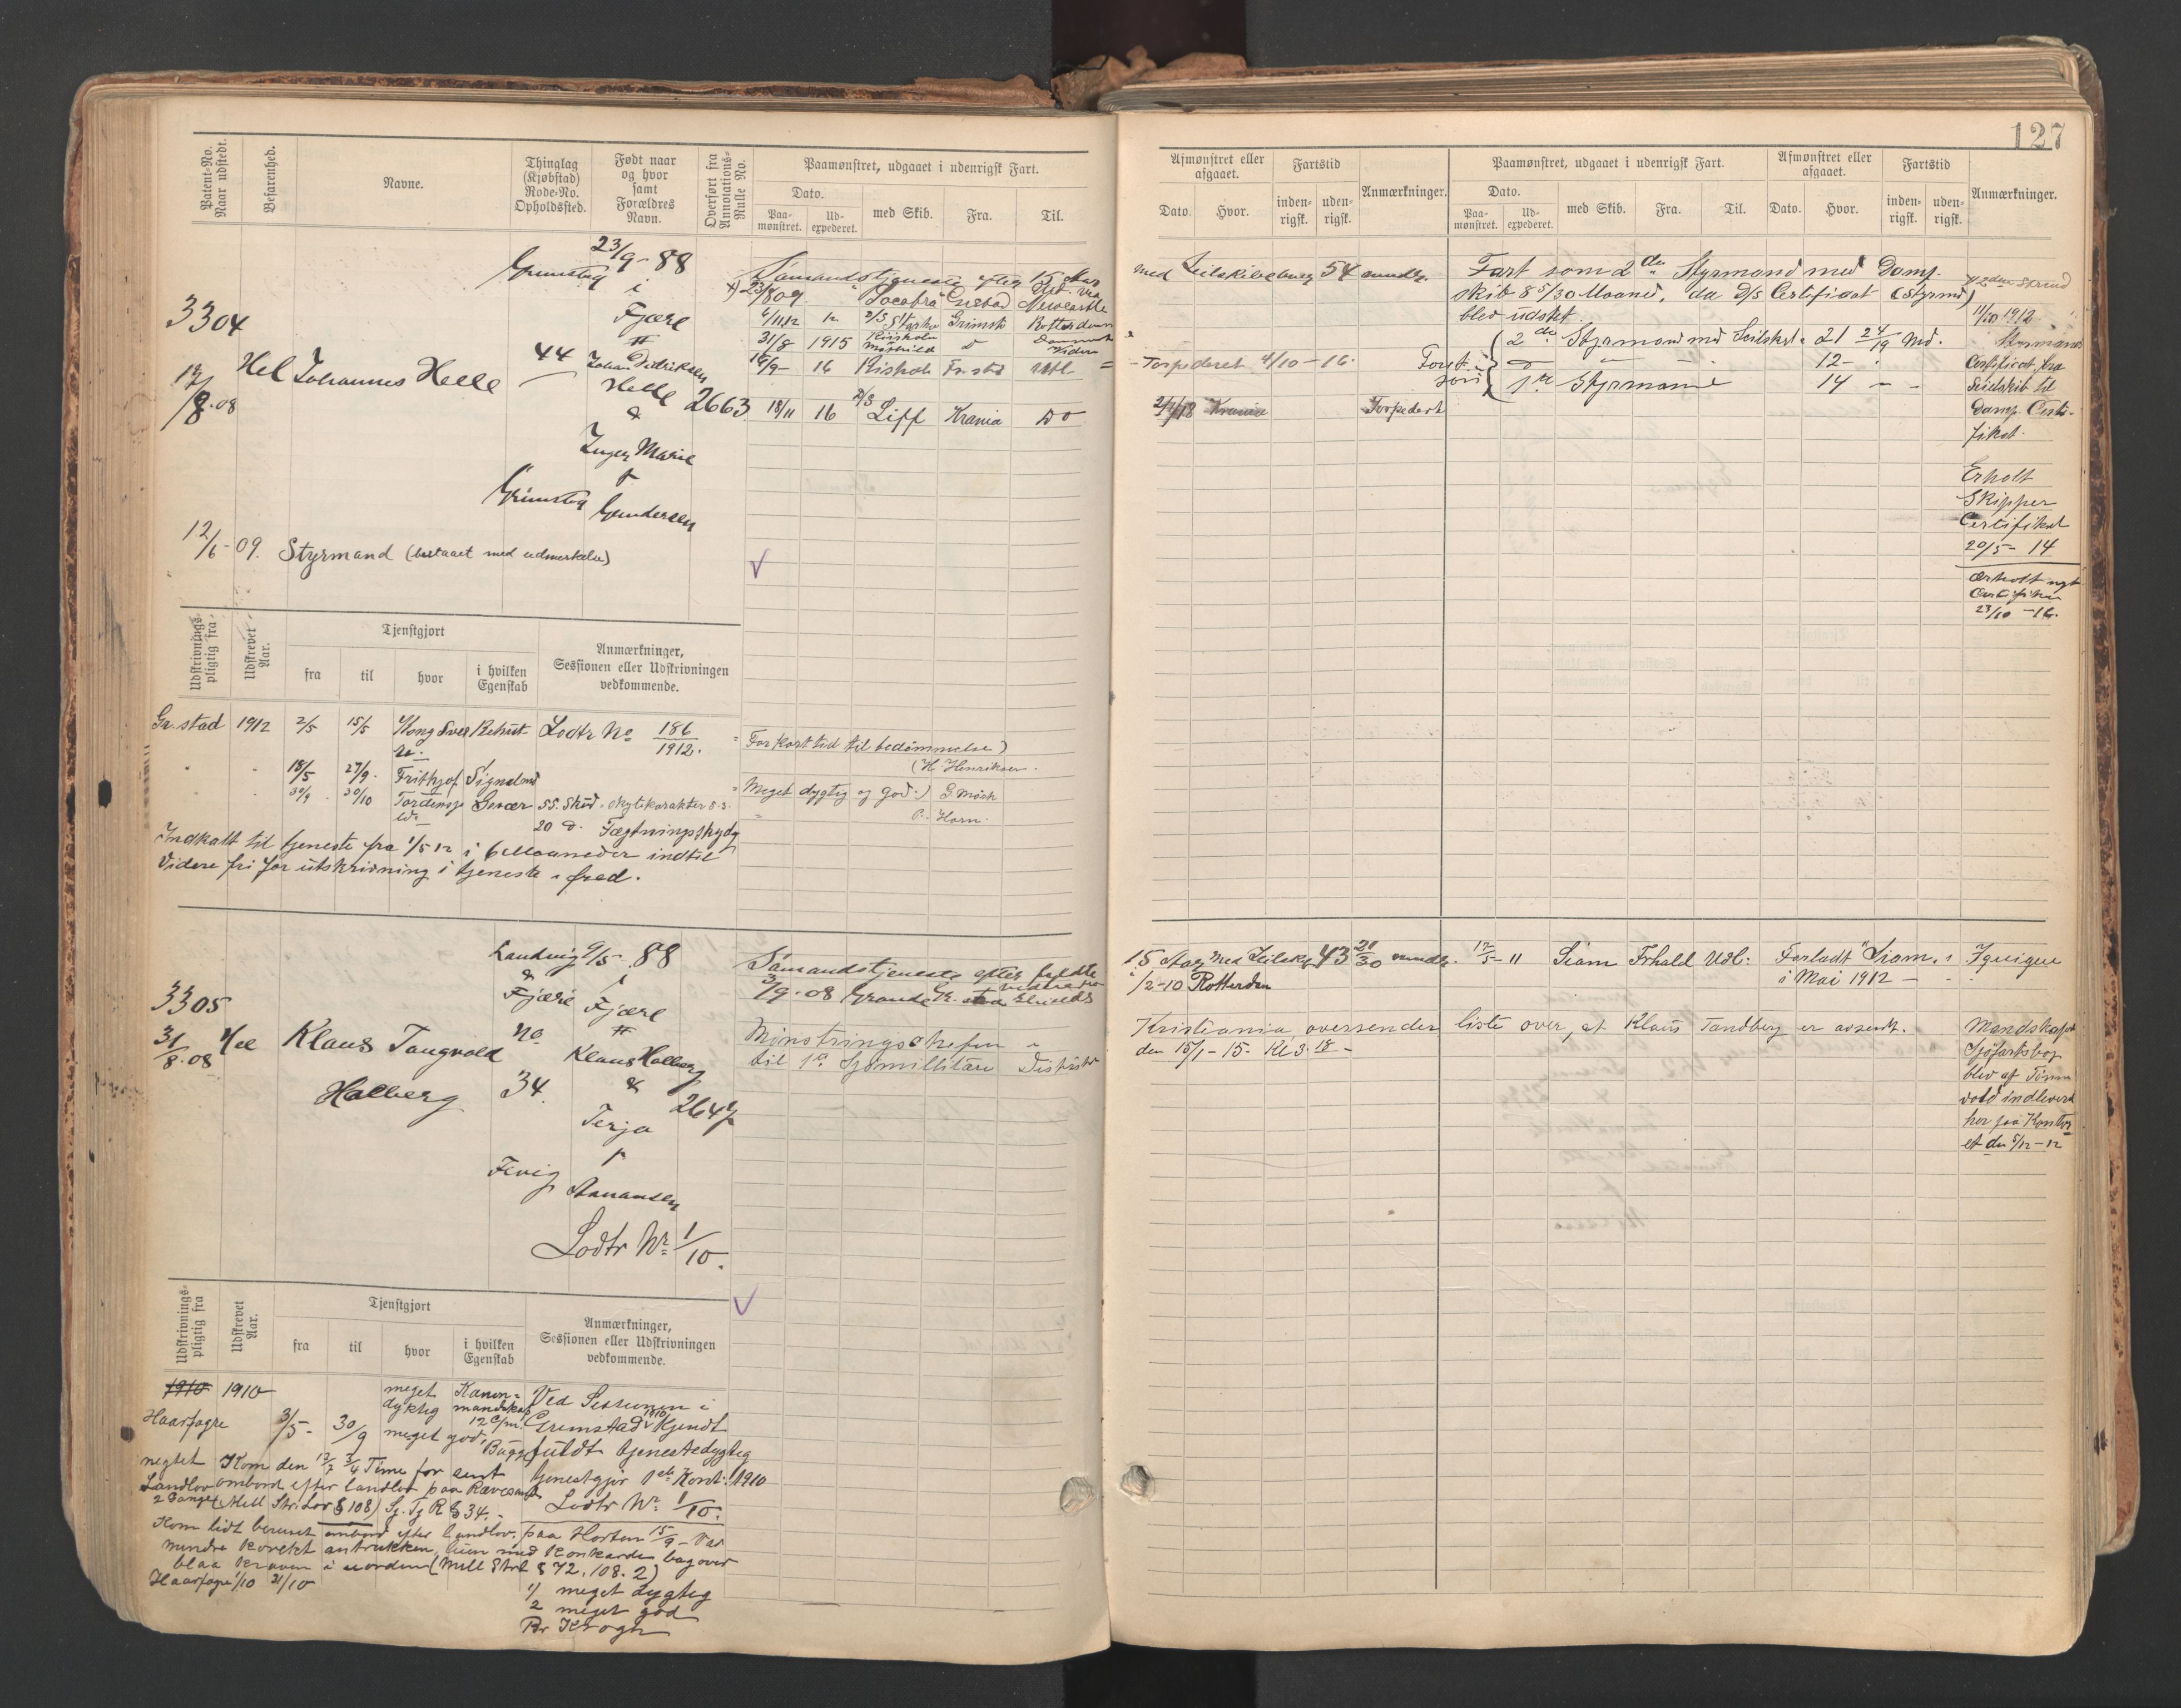 127
Patent-No. Naar udstedt.
Befarenhed.
Navne.
Thinglag (Kjøbstad) Rode-No. Opholdssted.
Født naar og hvor samt Forældres Navn.
Overført fra Annotations-Rulle No.
Paamønstret, udgaaet i udenrigsk Fart.
Dato.
Paamønstret. Udexpederet. med Skib. Fra. Til.
Afmønstret eller afgaaet.
Dato. Hvor.
Fartstid
indenrigsk. udenrigsk.
Anmærkninger.
Paamønstret, udgaaet i udenrigsk Fart.
Dato.
Paamønstret. Udexpederet. med Skib. Fra. Til.
Afmønstret eller afgaaet.
Dato. Hvor.
Fartstid
indenrigsk. udenrigsk.
Anmærkninger.
3304
17/8-08
Hel Johannes Helle
Grimstad
44
Grimstad
23/9-88
i
Fjære
Johan Didriksen
Helle
&
Inger Marie
f
Gundersen
2663
12/6-09. Styrmand (bestaaet med udmerkelse)
Sømandstjeneste efter 15 Aar
23/8 09 Socotra Grstad Newcastle
6/11 12 D/S Grimst Rotterdam
31/8 1915
16/9- 16 Risholm
18/11 16 D/S Liff Krania Do
med Seilskibe 54 mndr.
- Torpederet 4/10-16.
2/4/18 Krania Torpedert
Fart som 2den Styrmand med Damp-
skib 8 5/30 Maaned, da D/S Certifikat (Styrmd)
blev udstet.
2de Styrmand med Seilskib 21 24/19 Md.
12 -
1ste Styrmand 14 - -
11/10 1912
Styrmands
Certifikat fra
Seilskib til
Damp Certi-
fikat.
Erholt
Skipper
Certifikat
20/5- 14
Erholt nyt
23/10 -16.
Udskrivningspligtig fra
Udskrevet Aar.
Tjenstgjort
fra til hvor i hvilken Egenskab
Anmærkninger, Sessionen eller Udskrivningen vedkommende.
Gr.stad 1912 2/5 15/5 Kong Sverre Rekrut Lodtr No 186/1912.
For kort tid til bedømmelse)
(H. Henriksen.
18/5 27/9 Frithjof Signalmd
Meget dygtig og god.) G. Mörk
30/9 30/10 Tordenskjold Gevær 55. Skud. skytekarakter 5.3.
20 D. Fægtningsskydg
P. Horn.
Indkalt til tjeneste fra 1/5 12 i 6 Maaneder indtil
Videre fri for utskrivning i tjeneste i fred.
3305
31/8-08
Klaus Tangvald
Halberg
Landvig
&
Fjære
No
34.
Fevig
9/5 88
i
Fjære
Klaus Halberg
&
Terja
f
Aanansen
2647
Lodtr Nr 1/10.
Sømandstjeneste efter fyldte
3/9-08 Grande Gr.stad Shields
Mönstringschefen i
til 1ste Sjömillitäre Distrikt
15 Aar med Seilsk. 43 21/30 mndr.
1/2-10 Rotterdam
17/5- 11 Siam Frhald Udl. Forladt "Siam" i
i Mai 1912
Iquique
Kristiania oversender liste over, at Klaus Tandberg er avsendt.
den 15/1-15. Kl 3.18-
Mandskapets
Sjöfartsbog
blev af Tönne-
vold indleveret
her paa Kontor
et den 5/12-12
Udskrivningspligtig fra
Udskrevet Aar.
Tjenstgjort
fra til hvor i hvilken Egenskab
Anmærkninger, Sessionen eller Udskrivningen vedkommende.
1910 1910
meget dyktig
Kanon-
mandskap
12 c/m.
Ved Sessionen i
Grimstad 1910 kjendt
fuldt tjenestedygtig
Haarfagre 3/5- 30/9 meget god,
tjenestgjør 1ste Kont. 1910
Lodtr Nr 1/10.
negtet
Landlov
2 Gange
Kom den 13/7 3/4 Time for sent
ombord efter landlov paa
(Mill Str.Lov § 108) Sj. Tj R § 34.
Kom lidt beruset ombord efter landlov, paa Horten 15/9 - Var
mindre korrekt antrukken, luen med Konkarden bagover
blaa Kraven i uorden (Mill Strl § 72, 108. 2)
Haarfagre 1/10 31/10
1/ meget dygtig
2 meget god
Br Krogh